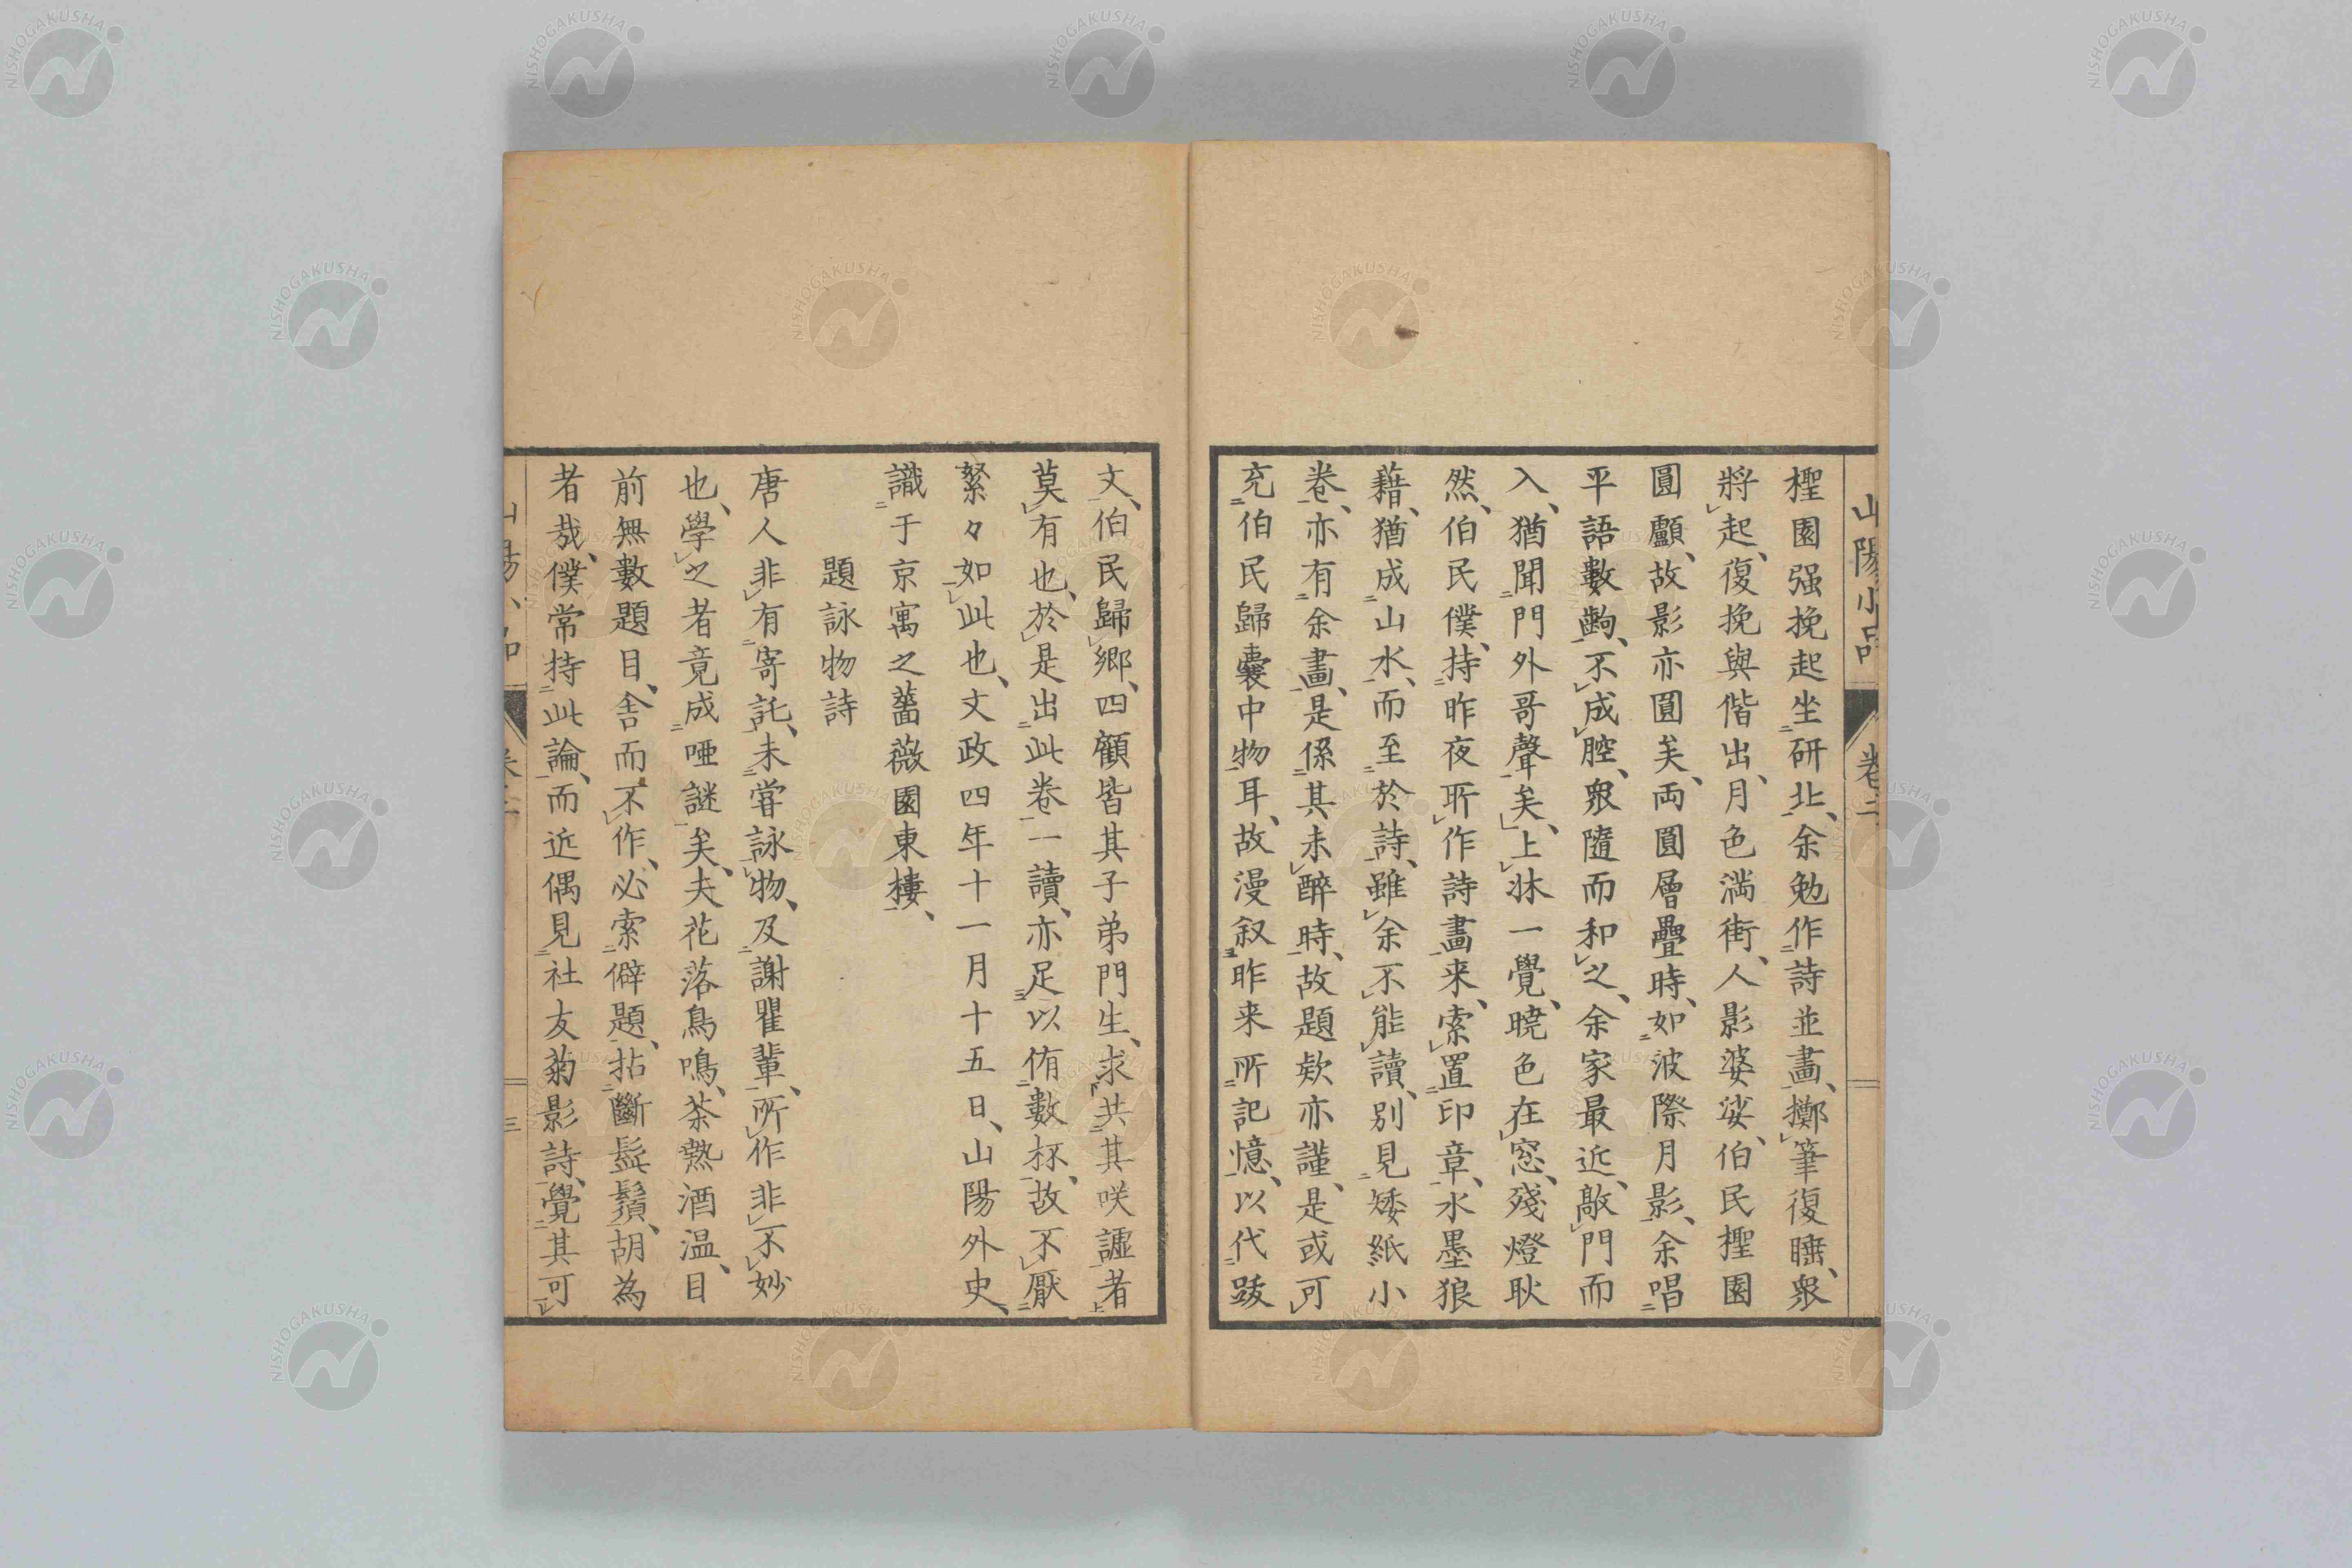 山陽小品 卷二
檉園强挽起坐研北、余勉作詩並畫、擲筆復睡、衆
將起、復挽與偕出、月色滿街、人影婆娑、伯民檉園
圓顱、故影亦圓矣、両圓層疊時、如波際月影、余唱
平語數齣、不成腔、衆隨而和之、余家最近、敲門而
入、猶聞門外哥聲矣、上牀一覺、曉色在窓、殘燈耿
然、伯民僕、持昨夜所作詩畫来、索置印章、水墨狼
藉、猶成山水、而至於詩、雖余不能讀、別見矮紙小
卷、亦有余畫、是係其未醉時、故題欵亦謹、是或可
充伯民歸囊中物耳、故漫叙昨来所記憶、以代跋
文、伯民歸郷、四顧皆其子弟門生、求共其咲謔者
莫有也、於是出此卷一讀、亦足以侑數杯、故不厭
繁々如此也、文政四年十一月十五日、山陽外史、
識于京寓之薔薇園東樓、
題詠物詩
唐人非有寄託、未甞詠物、及謝瞿輩、所作非不妙
也、學之者竟成唖謎矣、夫花落鳥鳴、茶熟酒温、目
前無數題目、舍而不作、必索僻題、拈斷髭鬚、胡為
者哉、僕常持此論、而近偶見社友菊影詩、覺其可
三